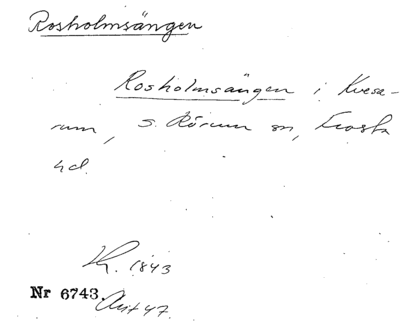 Rosholmsängen
Rosholmsängen i Kvesa-
rum, s. Rörum sn, Frosta
hd.
1843
Nr 6743. Avt 47.